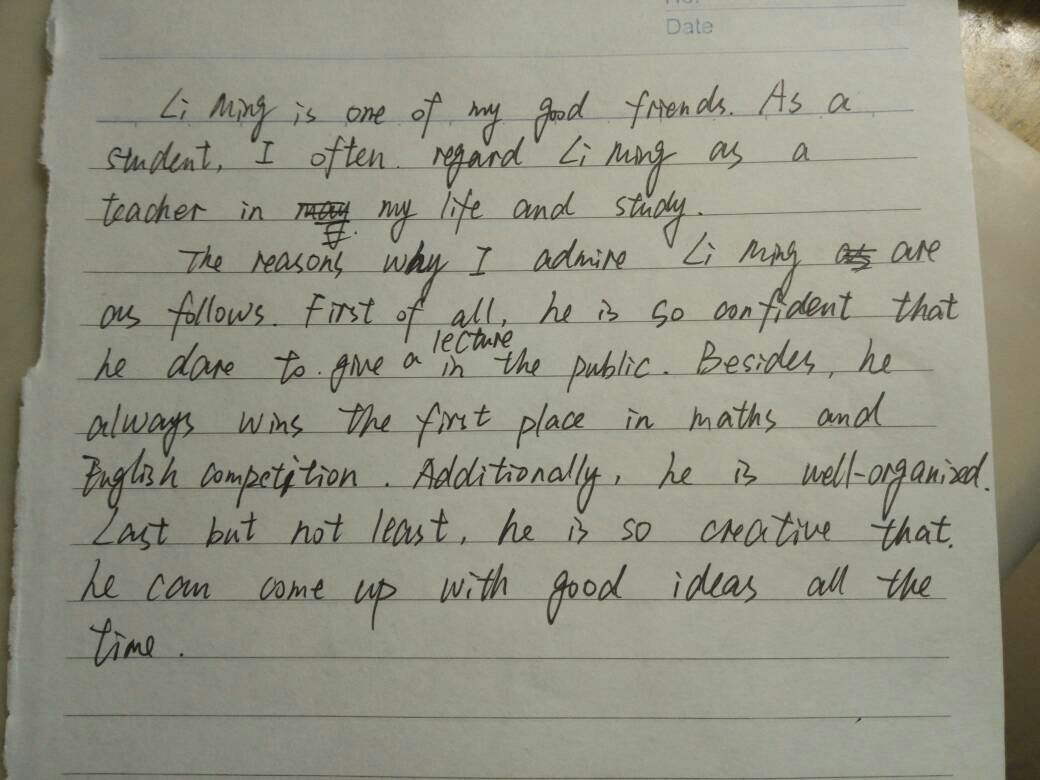 Date
Li Ming is one of my good friends. As a
student, I often regard Li Ming as a
teacher in my life and study.
The reasons why I admire Li Ming are
as follows. First of all, he is so confident that
he dare to give a lecture in the public. Besides, he
always wins the first place in maths and
English competition. Additionally, he is well-organized.
Last but not least, he is so creative that
he can come up with good ideas all the
time.